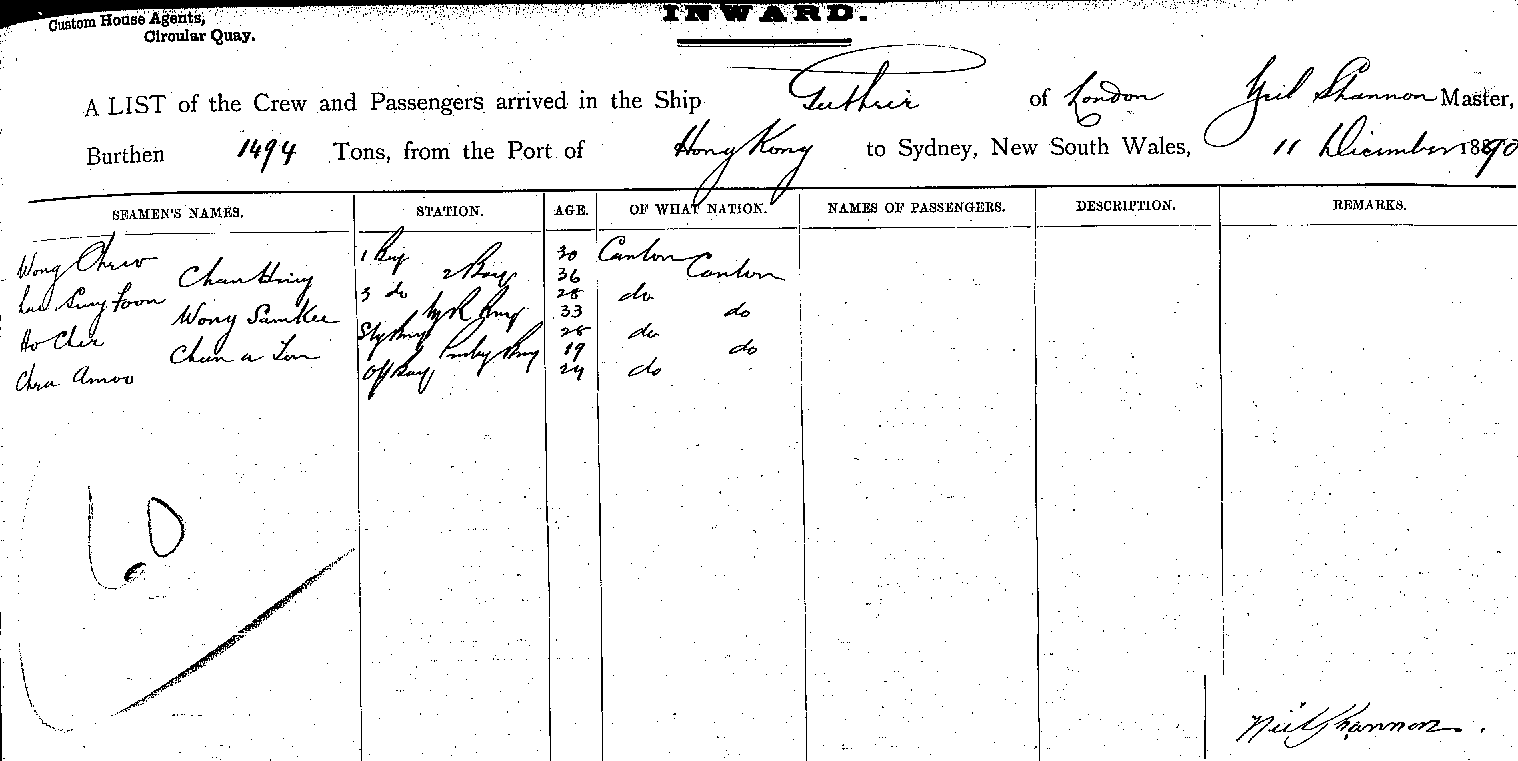 Custom House Agents,
Circular Quay.
INWARD.
A LIST of the Crew and Passengers arrived in the Ship Guthrie of London Neil Shannon Master,
Burthen 1494 Tons, from the Port of Hong Kong to Sydney, New South Wales, 11 December 1890
SEAMEN'S NAMES. STATION. AGE. OF WHAT NATION. NAMES OF PASSENGERS. DESCRIPTION. REMARKS.
Wong Chew 1 Boy 30 Canton
Chan Hing 2 Boy 36 Canton
3 do 28 do
Wong Sam Kee 33 do
Ho Chee 28 do
Chan a Pantry Boy 19 do
Amoo Off Boy 24 do
60
Neil Shannon.